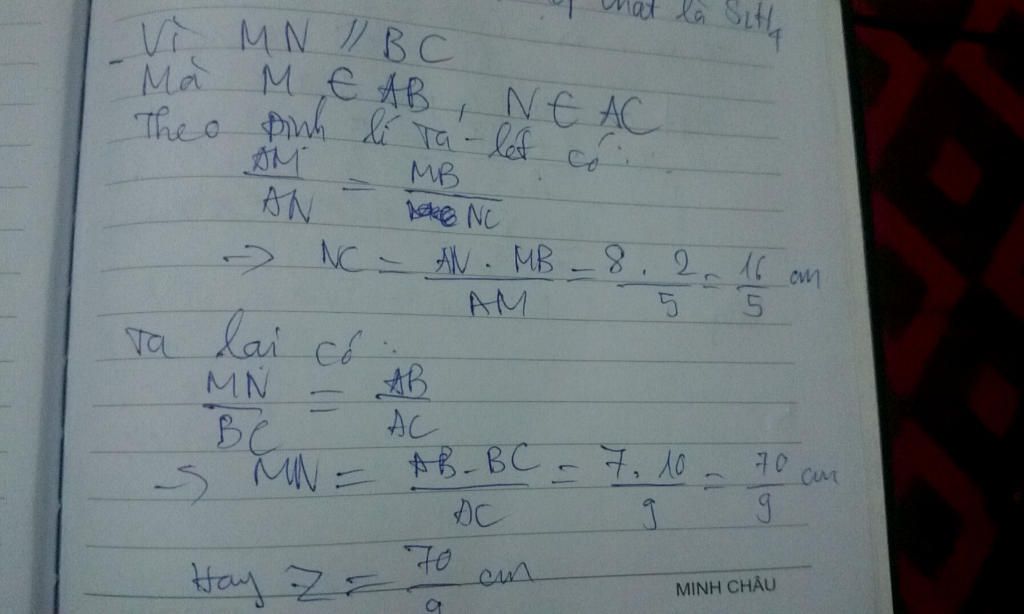 chất là SiH4
Vì MN // BC
Mà M ∈ AB, N ∈ AC
Theo Định lí Ta-lét có:
AM/AN = MB/NC
-> NC = AN . MB/AM = 8 . 2/5 = 16/5 cm
Ta lại có:
MN/BC = AB/AC
-> MN = AB - BC/AC = 7 . 10/9 = 70/9 cm
Hay Z = 70/9 cm
MINH CHÂU